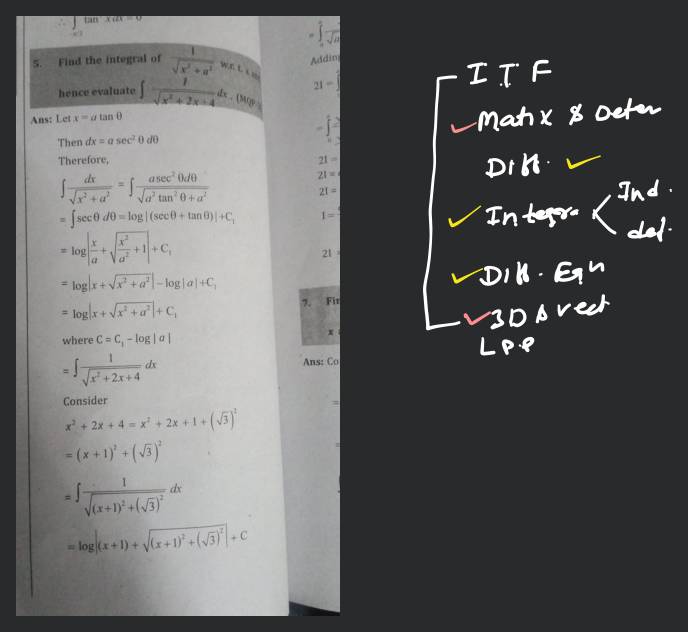 ∴ ∫ tan x dx = 0
5. Find the integral of 1/√(x² + a²) w.r.t. x
hence evaluate ∫ 1/√(x² + 2x + 4) dx. (MQP
Ans: Let x = a tan θ
Then dx = a sec² θ dθ
Therefore,
∫ dx/√(x² + a²) = ∫ a sec² θdθ/√(a² tan² θ + a²)
= ∫ sec θ dθ = log|(sec θ + tan θ)| + C₁
= log|x/a + √(x²/a² + 1)| + C₁
= log|x + √(x² + a²)| − log|a| + C₁
= log|x + √(x² + a²)| + C₁
where C = C₁ − log|a|
= ∫ 1/√(x² + 2x + 4) dx
Consider
x² + 2x + 4 = x² + 2x + 1 + (√3)²
= (x + 1)² + (√3)²
= ∫ 1/√((x+1)² + (√3)²) dx
= log|(x+1) + √((x+1)² + (√3)²)| + C
Adding
2I =
2I =
2I =
2I =
I =
2I
7. Fin
x
Ans: Co
I T F
Matix & Deter
Diff.
Integra < Ind.
def.
Diff. Eqn
3D & vect
L P P